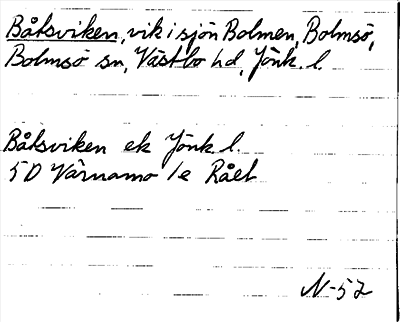 Båksviken, vik i sjön Bolmen, Bolmsö,
Bolmsö sn, Västbo hd, Jönk. l.
Båksviken ek Jönk. l.
5D Värnamo 1e Rået
N-52